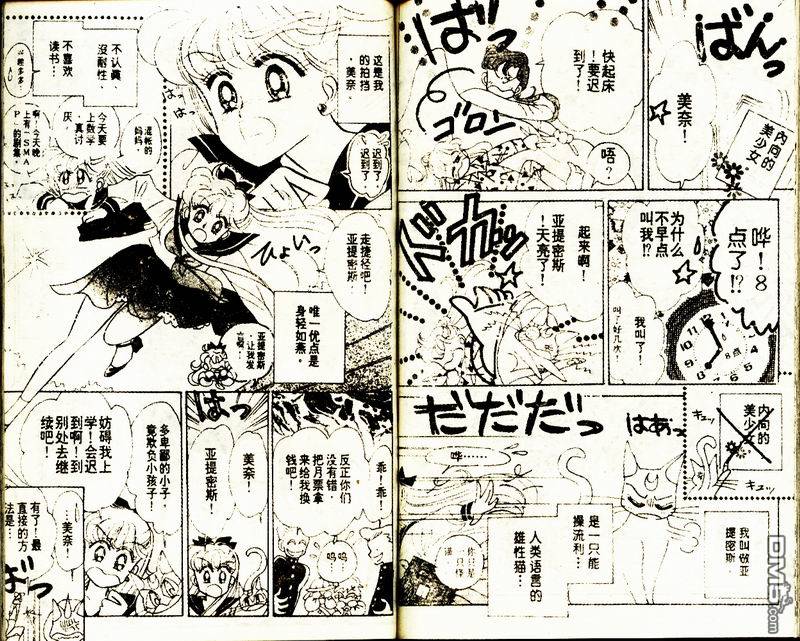 ばんっ
美奈！
内向的
美少女
ばっ
快起床
！要迟
到了！
ゴロン
唔？
哗！8
点了!?
为什么
不早点
叫我!?
我叫了！
叫了好几次！
起来啊！
亚提密斯
！天亮了！
ズガガッ
内向的
美少女
キュッ
キュッ
はあっ
だだだっ
哗……
我叫做亚
提密斯
是一只能
操流利
人类语言的
雄性猫…
这是我
的拍挡
美奈。
迟到！
迟到了！
不认真
沒耐性，
不喜欢
读书…
混帐的
妈妈，
今天要
上数学
，真讨
厌。
啊，今天晚
上有「SMA
P」的剧集。
走捷径吧！
亚提密斯
ひょいっ
唯一优点是
身轻如燕。
亚提密斯
乖！乖！
反正你们
没有错，
把月票拿
来给我换
钱吧！
呜呜
ばっ
美奈！
亚提密斯！
多卑鄙的小子，
竟欺负小孩子！
妨碍我上
学！会迟
到啊！到
别处去继
续吧！
…美奈！
有了！最
直接的方
法是…
DM5.com